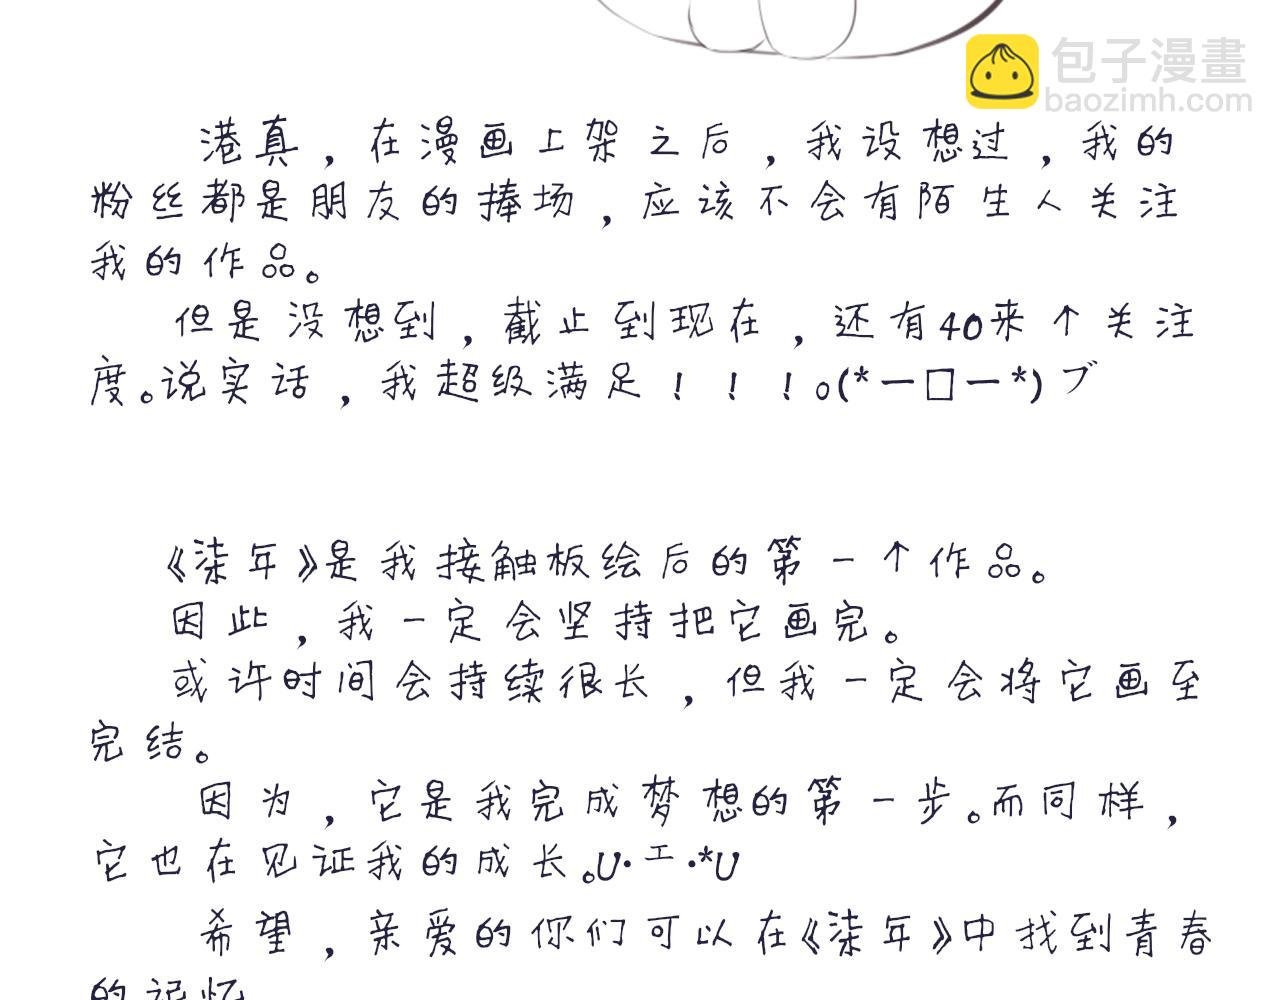 包子漫畫
baozimh.com
港真，在漫画上架之后，我设想过，我的
粉丝都是朋友的捧场，应该不会有陌生人关注
我的作品。
但是没想到，截止到现在，还有40来个关注
度。说实话，我超级满足！！！。(*一口一*)ブ
《柒年》是我接触板绘后的第一个作品。
因此，我一定会坚持把它画完。
或许时间会持续很长，但我一定会将它画至
完结。
因为，它是我完成梦想的第一步。而同样，
它也在见证我的成长。U·エ·*U
希望，亲爱的你们可以在《柒年》中找到青春
的记忆